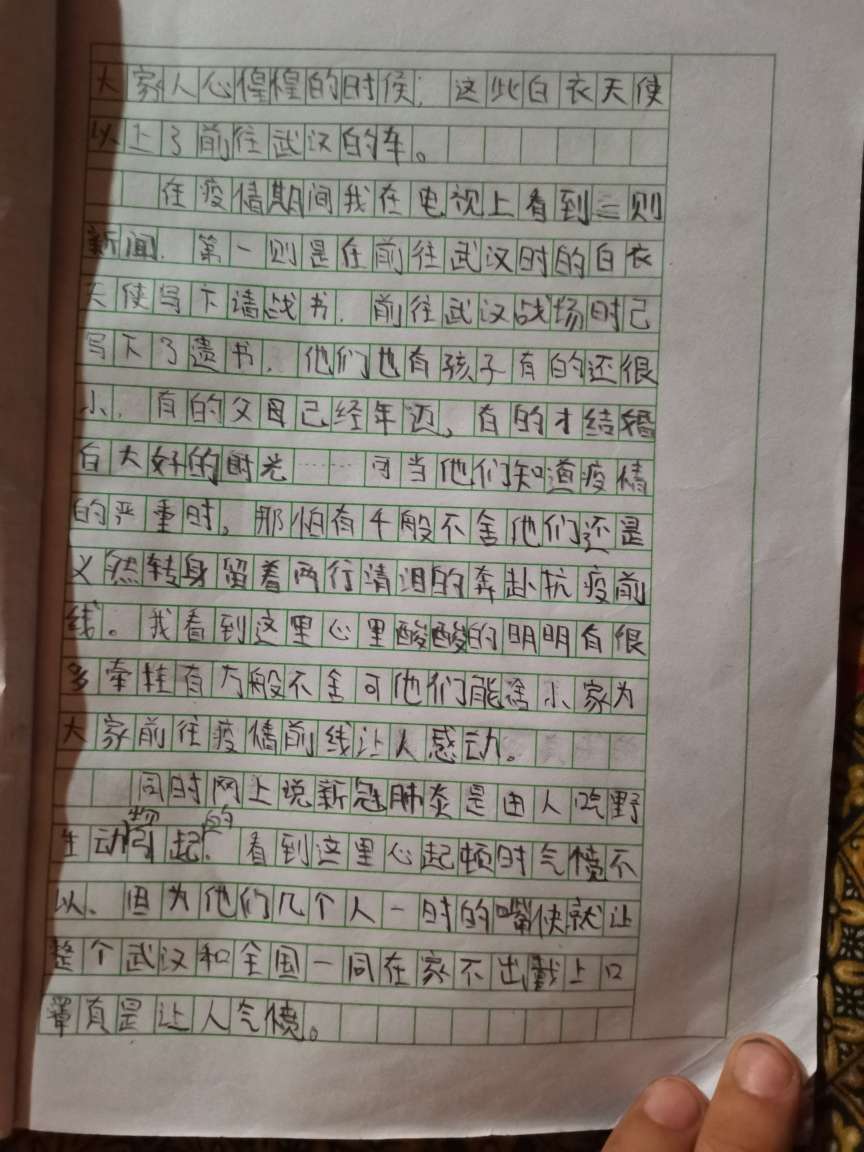 大家人心惶惶的时侯，这些白衣天使
以上了前往武汉的车。
在疫情期间我在电视上看到三则
新闻，第一则是在前往武汉时的白衣
天使写下请战书，前往武汉战场时己
写下了遗书，他们也有孩子有的还很
小，有的父母已经年迈，有的才结婚
白大好的时光……可当他们知道疫情
的严重时，那怕有千般不舍他们还是
义然转身留着两行清泪的奔赴抗疫前
线。我看到这里心里酸酸的明明有很
多牵挂有万般不舍可他们能舍小家为
大家前往疫情前线让人感动。
同时网上说新冠肺炎是由人吃野
生动物引起的，看到这里心起顿时气愤不
以、但为他们几个人一时的嘴快就让
整个武汉和全国一同在家不出戴上口
罩真是让人气愤。